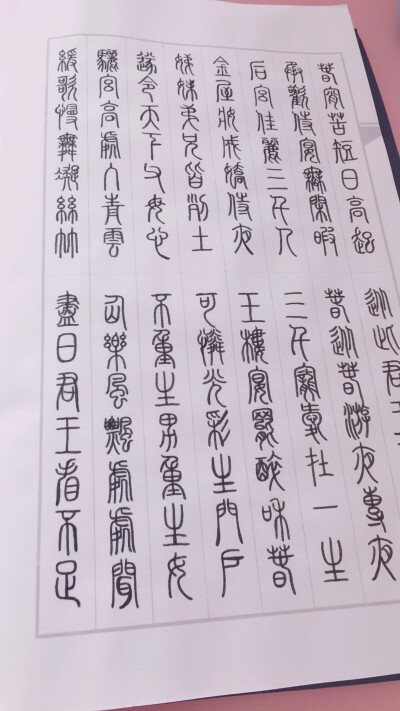 春宵苦短日高起 從此君王
承歡侍宴無閒暇 春從春游夜專夜
后宮佳麗三千人 三千寵愛在一生
金屋妝成嬌侍夜 玉樓宴罷醉和春
姊妹弟兄皆列土 可憐光彩生門戶
遂令天下父母心 不重生男重生女
驪宮高處入青雲 仙樂風飄處處聞
緩歌慢舞凝絲竹 盡日君王看不足